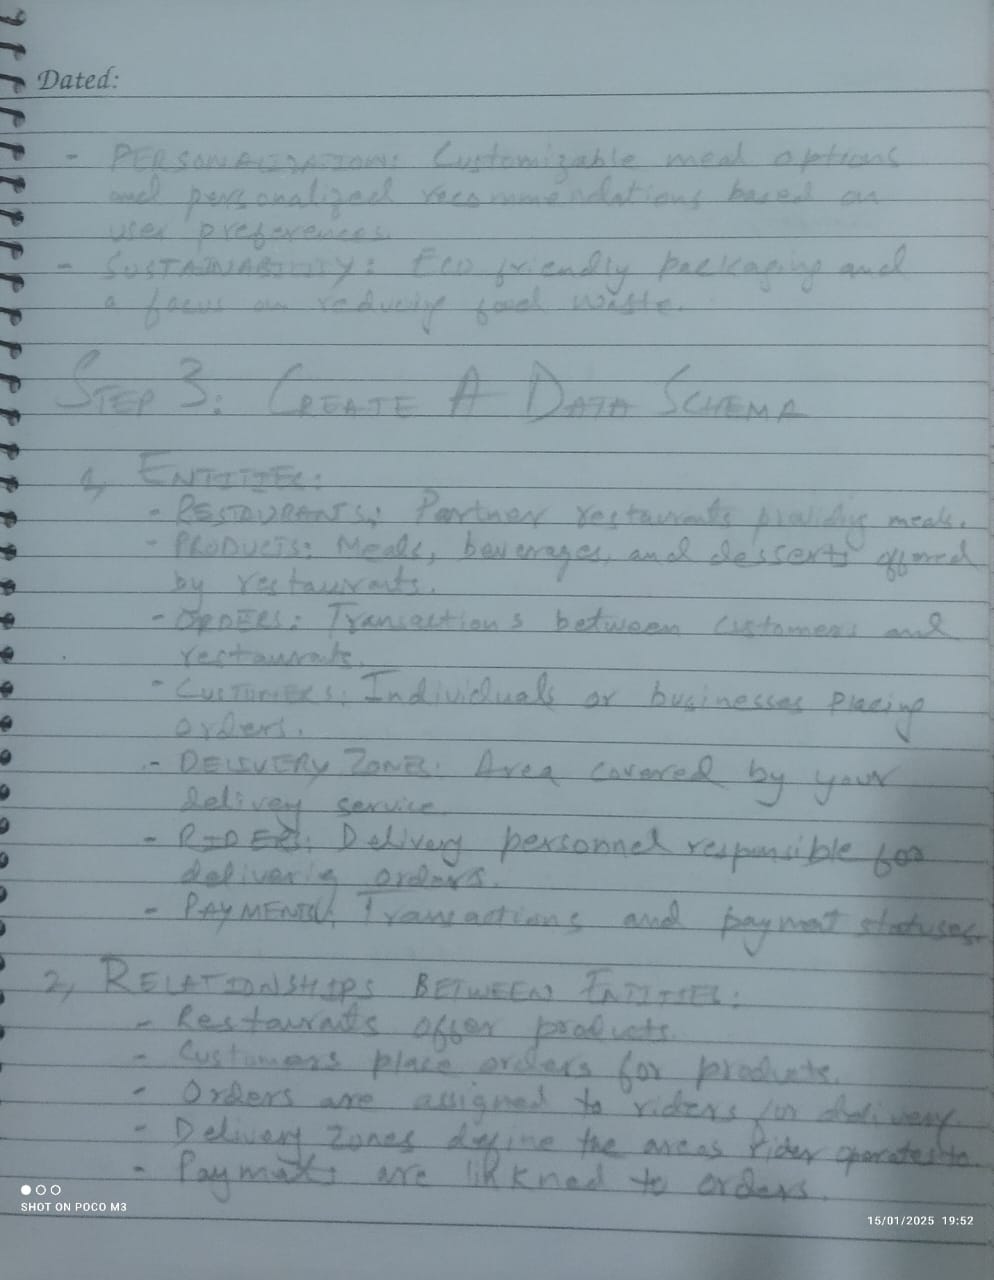 Dated:
- PERSONALIZATION: Customizable meal options
and personalized recommendations based on
user preferences.
- SUSTAINABILITY: Eco friendly packaging and
a focus on reducing food waste.
STEP 3: CREATE A DATA SCHEMA
1, ENTITIES:
- RESTAURANTS: Partner restaurants providing meals.
- PRODUCTS: Meals, beverages, and desserts offered
by restaurants.
- ORDERS: Transactions between customers and
restaurants.
- CUSTOMERS: Individuals or businesses placing
orders.
- DELIVERY ZONE: Area covered by your
delivey service.
- RIDERS: Delivery personnel responsible for
delivering orders.
- PAYMENTS: Transactions and payment statuses.
2, RELATIONSHIPS BETWEEN ENTITIES:
- Restaurants offer products.
- Customers place orders for products.
- Orders are assigned to riders for delivery.
- Delivery zones define the areas rider operates
- Payments are likkned to orders.
SHOT ON POCO M3
15/01/2025 19:52